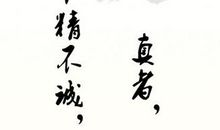 真者，
精不诚，